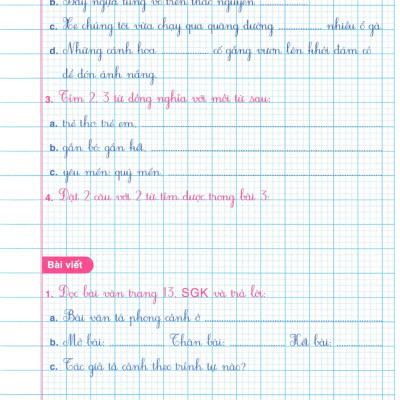 b. Bầy ngựa tung vó trên thảo nguyên ...............
c. Xe chúng tôi vừa chạy qua quãng đường ............... nhiều ổ gà.
d. Những cánh hoa ............... cố gắng vươn lên khỏi đám cỏ
để đón ánh nắng.
3. Tìm 2, 3 từ đồng nghĩa với mỗi từ sau:
a. trẻ thơ: trẻ em, ...............
b. gắn bó: gần hết, ...............
c. yêu mến: quý mến, ...............
4. Đặt 2 câu với 2 từ tìm được trong bài 3:
Bài viết
1. Đọc bài văn trang 13, SGK và trả lời:
a. Bài văn tả phong cảnh ở ...............
b. Mở bài: ............... Thân bài: ............... Kết bài: ...............
c. Tác giả tả cảnh theo trình tự nào?